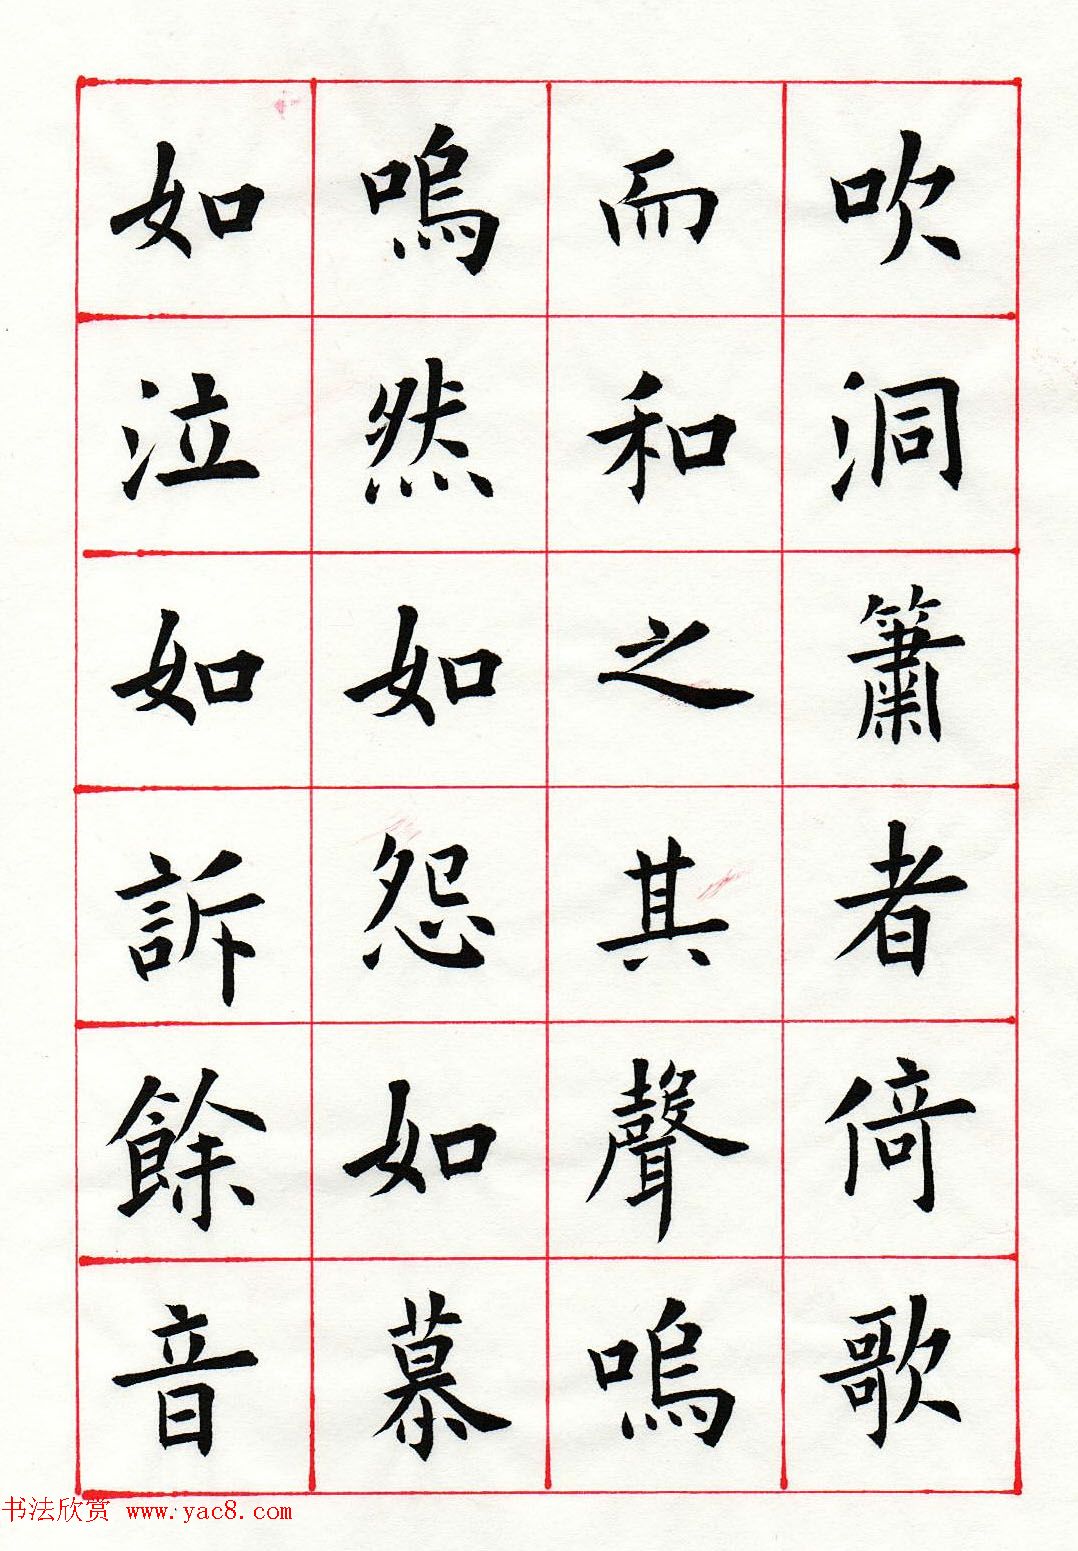 吹洞簫者倚歌
而和之其聲嗚
嗚然如怨如慕
如泣如訴餘音
书法欣赏 www.yac8.com